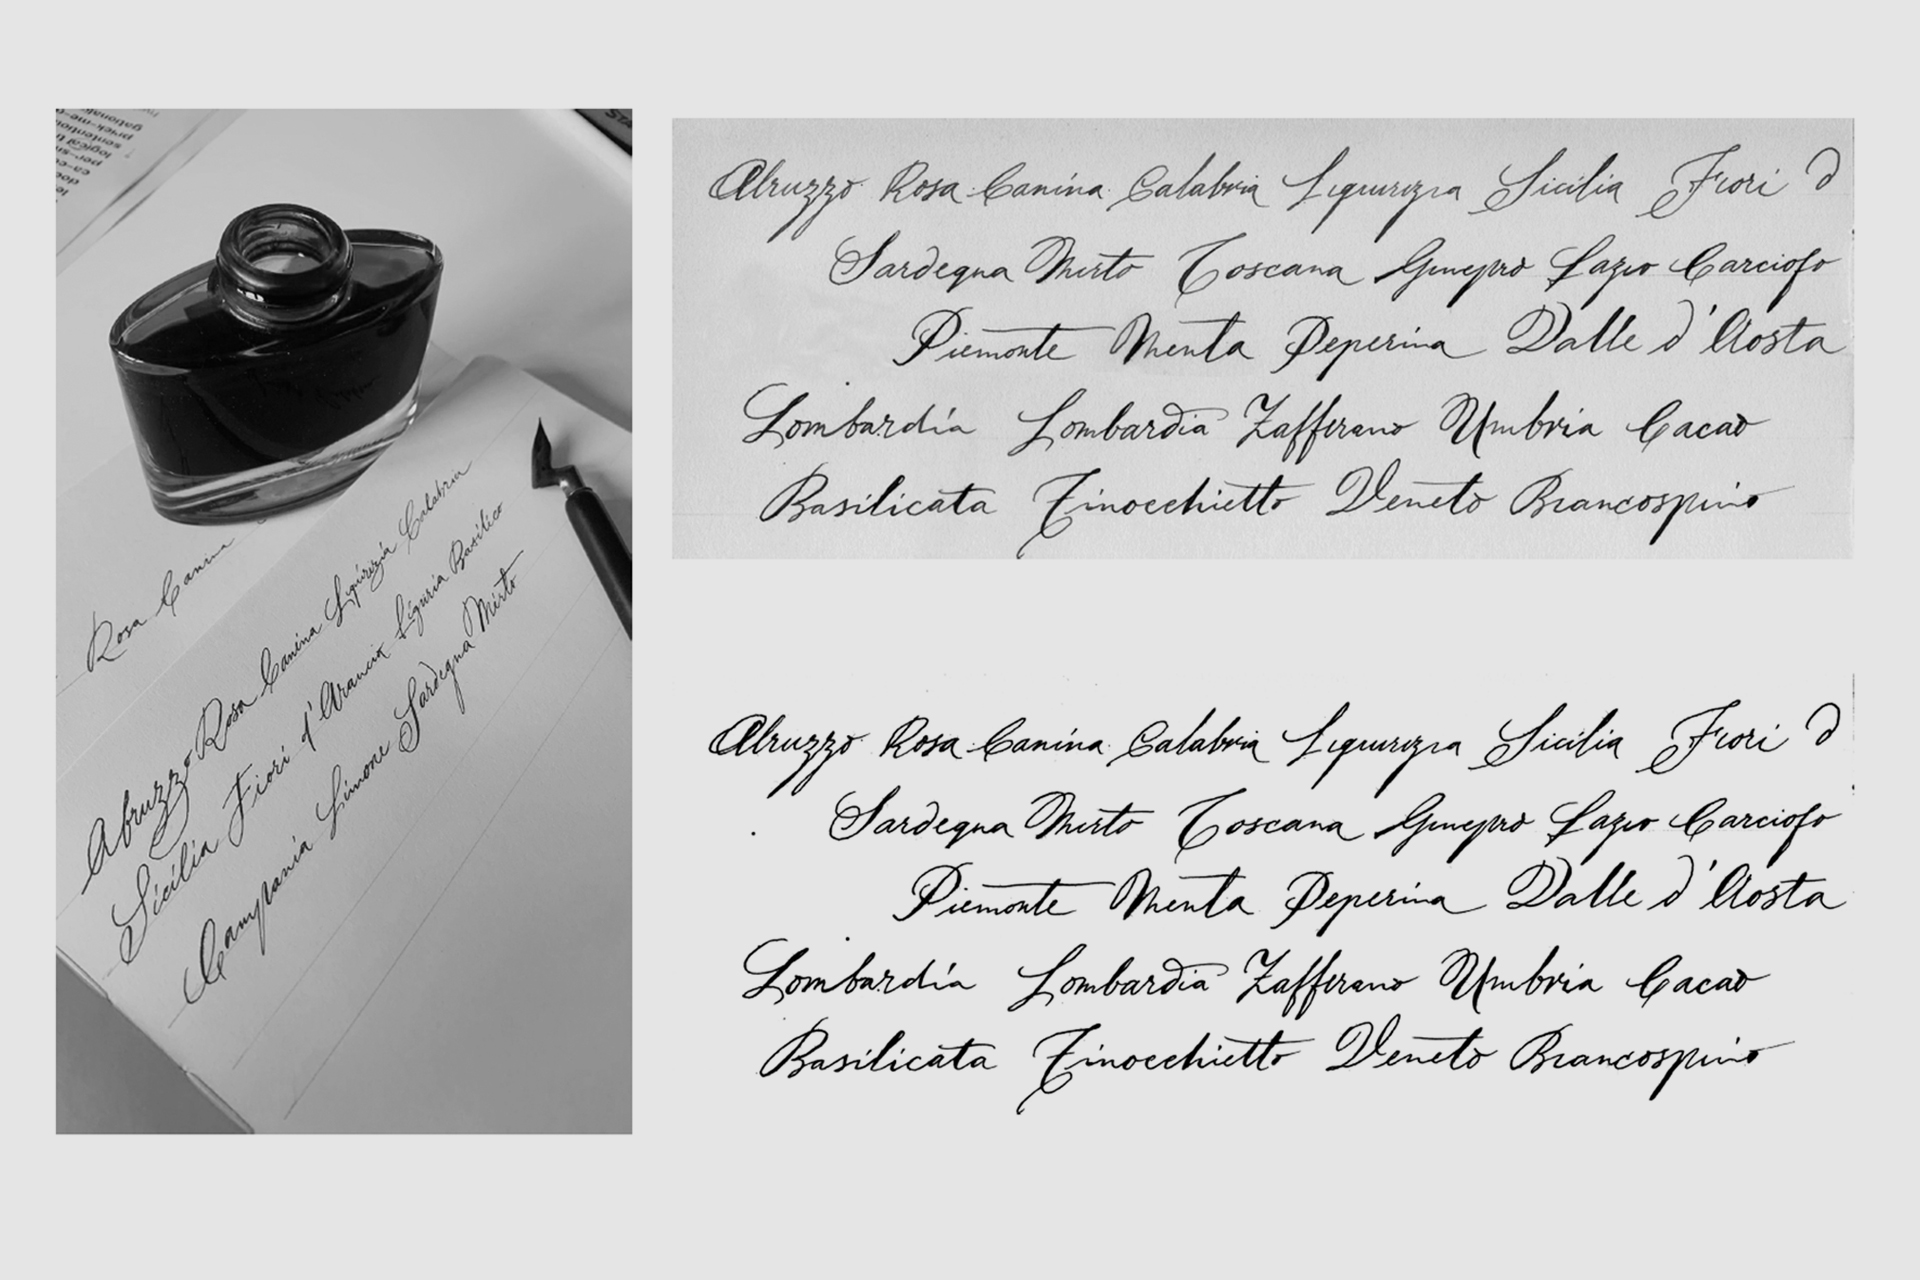 Rosa Canina
Abruzzo Rosa Canina Liquirizia Calabria
Sicilia Fiori d'Arancio Liguria Basilico
Campania Limone Sardegna Mirto
Abruzzo Rosa Canina Calabria Liquirizia Sicilia Fiori d
Sardegna Mirto Toscana Ginepro Lazio Carciofo
Piemonte Menta Peperina Valle d'Aosta
Lombardia Lombardia Zafferano Umbria Cacao
Basilicata Finocchietto Veneto Biancospino
Abruzzo Rosa Canina Calabria Liquirizia Sicilia Fiori d
Sardegna Mirto Toscana Ginepro Lazio Carciofo
Piemonte Menta Peperina Valle d'Aosta
Lombardia Lombardia Zafferano Umbria Cacao
Basilicata Finocchietto Veneto Biancospino